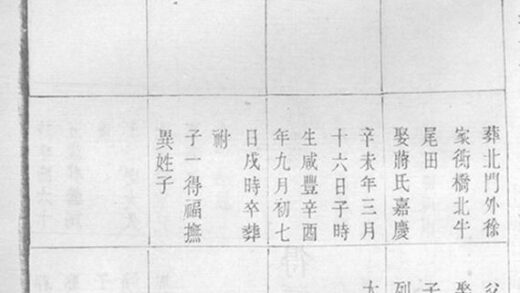 葬北門外徐
家衖橋北牛
尾田
娶蔣氏嘉慶
辛未年三月
十六日子時
生咸豐辛酉
年九月初七
日戌時卒葬
祔
子一得福撫
異姓子
娶
子
列
得